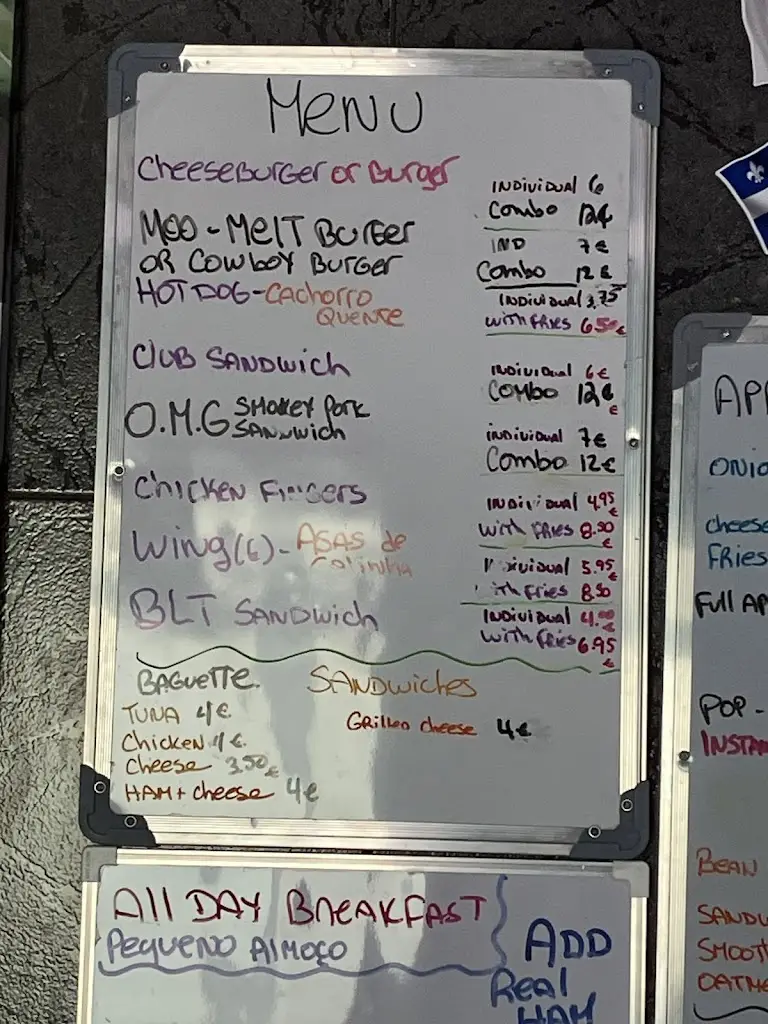 MENU
CHEESEBURGER OR BURGER
INDIVIDUAL 6
COMBO 12€
MOO-MELT BURGER
OR COWBOY BURGER
IND 7€
COMBO 12€
HOT DOG-CACHORRO
QUENTE
INDIVIDUAL 3,75
WITH FRIES 6.50€
CLUB SANDWICH
INDIVIDUAL 6€
COMBO 12€
€
O.M.G SMOKEY PORK
SANDWICH
INDIVIDUAL 7€
COMBO 12€
CHICKEN FINGERS
INDIVIDUAL 4.95
€
WITH FRIES 8.50
€
WING(6)-ASAS de
INDIVIDUAL 5.95
€
WITH FRIES 8.50
€
BLT SANDWICH
INDIVIDUAL 4.00
€
WITH FRIES 6.95
€
BAGUETTE.
TUNA 4€
CHICKEN 4€
CHEESE 3.50€
HAM+CHEESE 4€
SANDWICHES
GRILLED CHEESE 4€
ALL DAY BREAKFAST
PEQUENO ALMOÇO
ADD
REAL
HAM
APP
ONIO
CHEESE
FRIES
FULL AP
POP-
INSTAN
BEAN
SANDW
SMOOTH
OATME